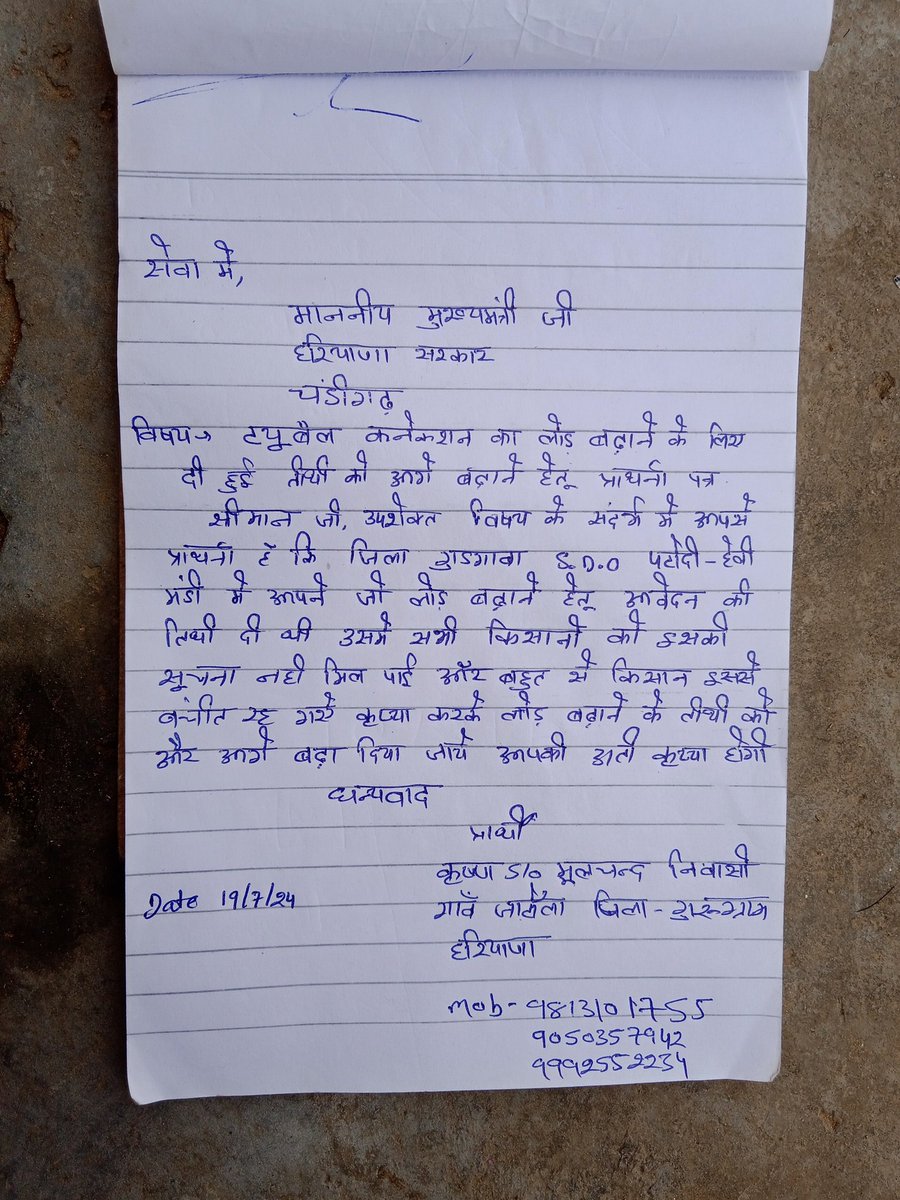 सेवा मे,
माननीय मुख्यमंत्री जी
हरियाणा सरकार
चंडीगढ़
विषय→ टयुबैल कनेकशन का लोड़ बढ़ाने के लिए
दी हुई तीथी को आगे बढ़ाने हेतू प्राथर्ना पत्र
श्रीमान जी, उपरोक्त विषय के संदर्भ मे आपसे
प्राथर्ना है कि जिला गुडगावा S.D.O पटोदी-हेली
मंडी मे आपने जो लोड़ बढ़ाने हेतू आवेदन की
तिथी दी थी उसमे सभी किसानो को इसकी
सूचना नही मिल पाई और बहुत से किसान इससे
बंचीत रह गए कृप्या करके लोड़ बढ़ाने के तीथी को
और आगे बढ़ा दिया जाये आपकी अती कृप्या होगी
धन्यवाद
प्रार्थी
कृष्ण S/o मूलचन्द निवासी
Date 19/7/24 गाँव जिला - गुरूग्राम
हरियाणा
mob- 9813101755
9050357942
9992552234